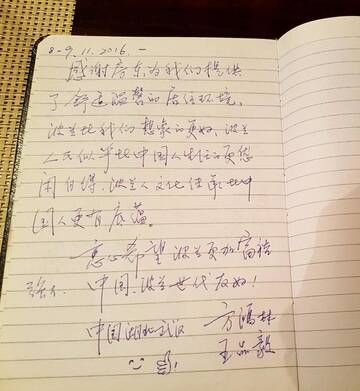 8-9.11.2016.
感谢房东为我们提供
了舒适温馨的居住环境。
波兰比我们想象的更好,波兰
人民似乎比中国人生活的更悠
闲自得,波兰人文化传承比中
国人更有底蕴。
衷心希望波兰更加富裕
中国、波兰世代友好!
中国湖北武汉 方鸿林
王品毅